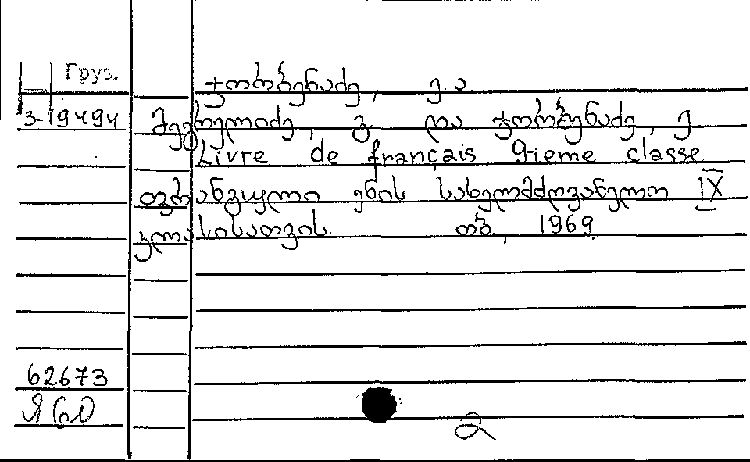 Груз.
ჯორბენაძე, ე. და
3-19494
მეგრელიძე, გ. და ჯორბენაძე, ე.
Livre de français 9ieme classe
ფრანგული ენის სახელმძღვანელო IX
კლასისათვის. თბ., 1969.
62673
2